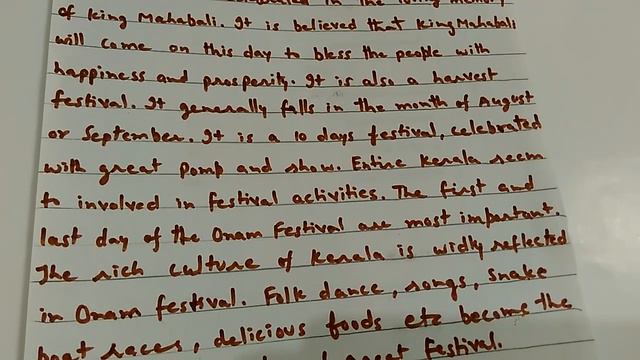 in the loving memory
of King Mahabali. It is believed that King Mahabali
will come on this day to bless the people with
happiness and prosperity. It is also a harvest
festival. It generally falls in the month of August
or September. It is a 10 days festival, celebrated
with great pomp and show. Entire Kerala seem
to involved in festival activities. The first and
last day of the Onam Festival are most important.
The rich culture of Kerala is widly reflected
in Onam festival. Folk dance, songs, snake
boat races, delicious foods etc become the
great festival.